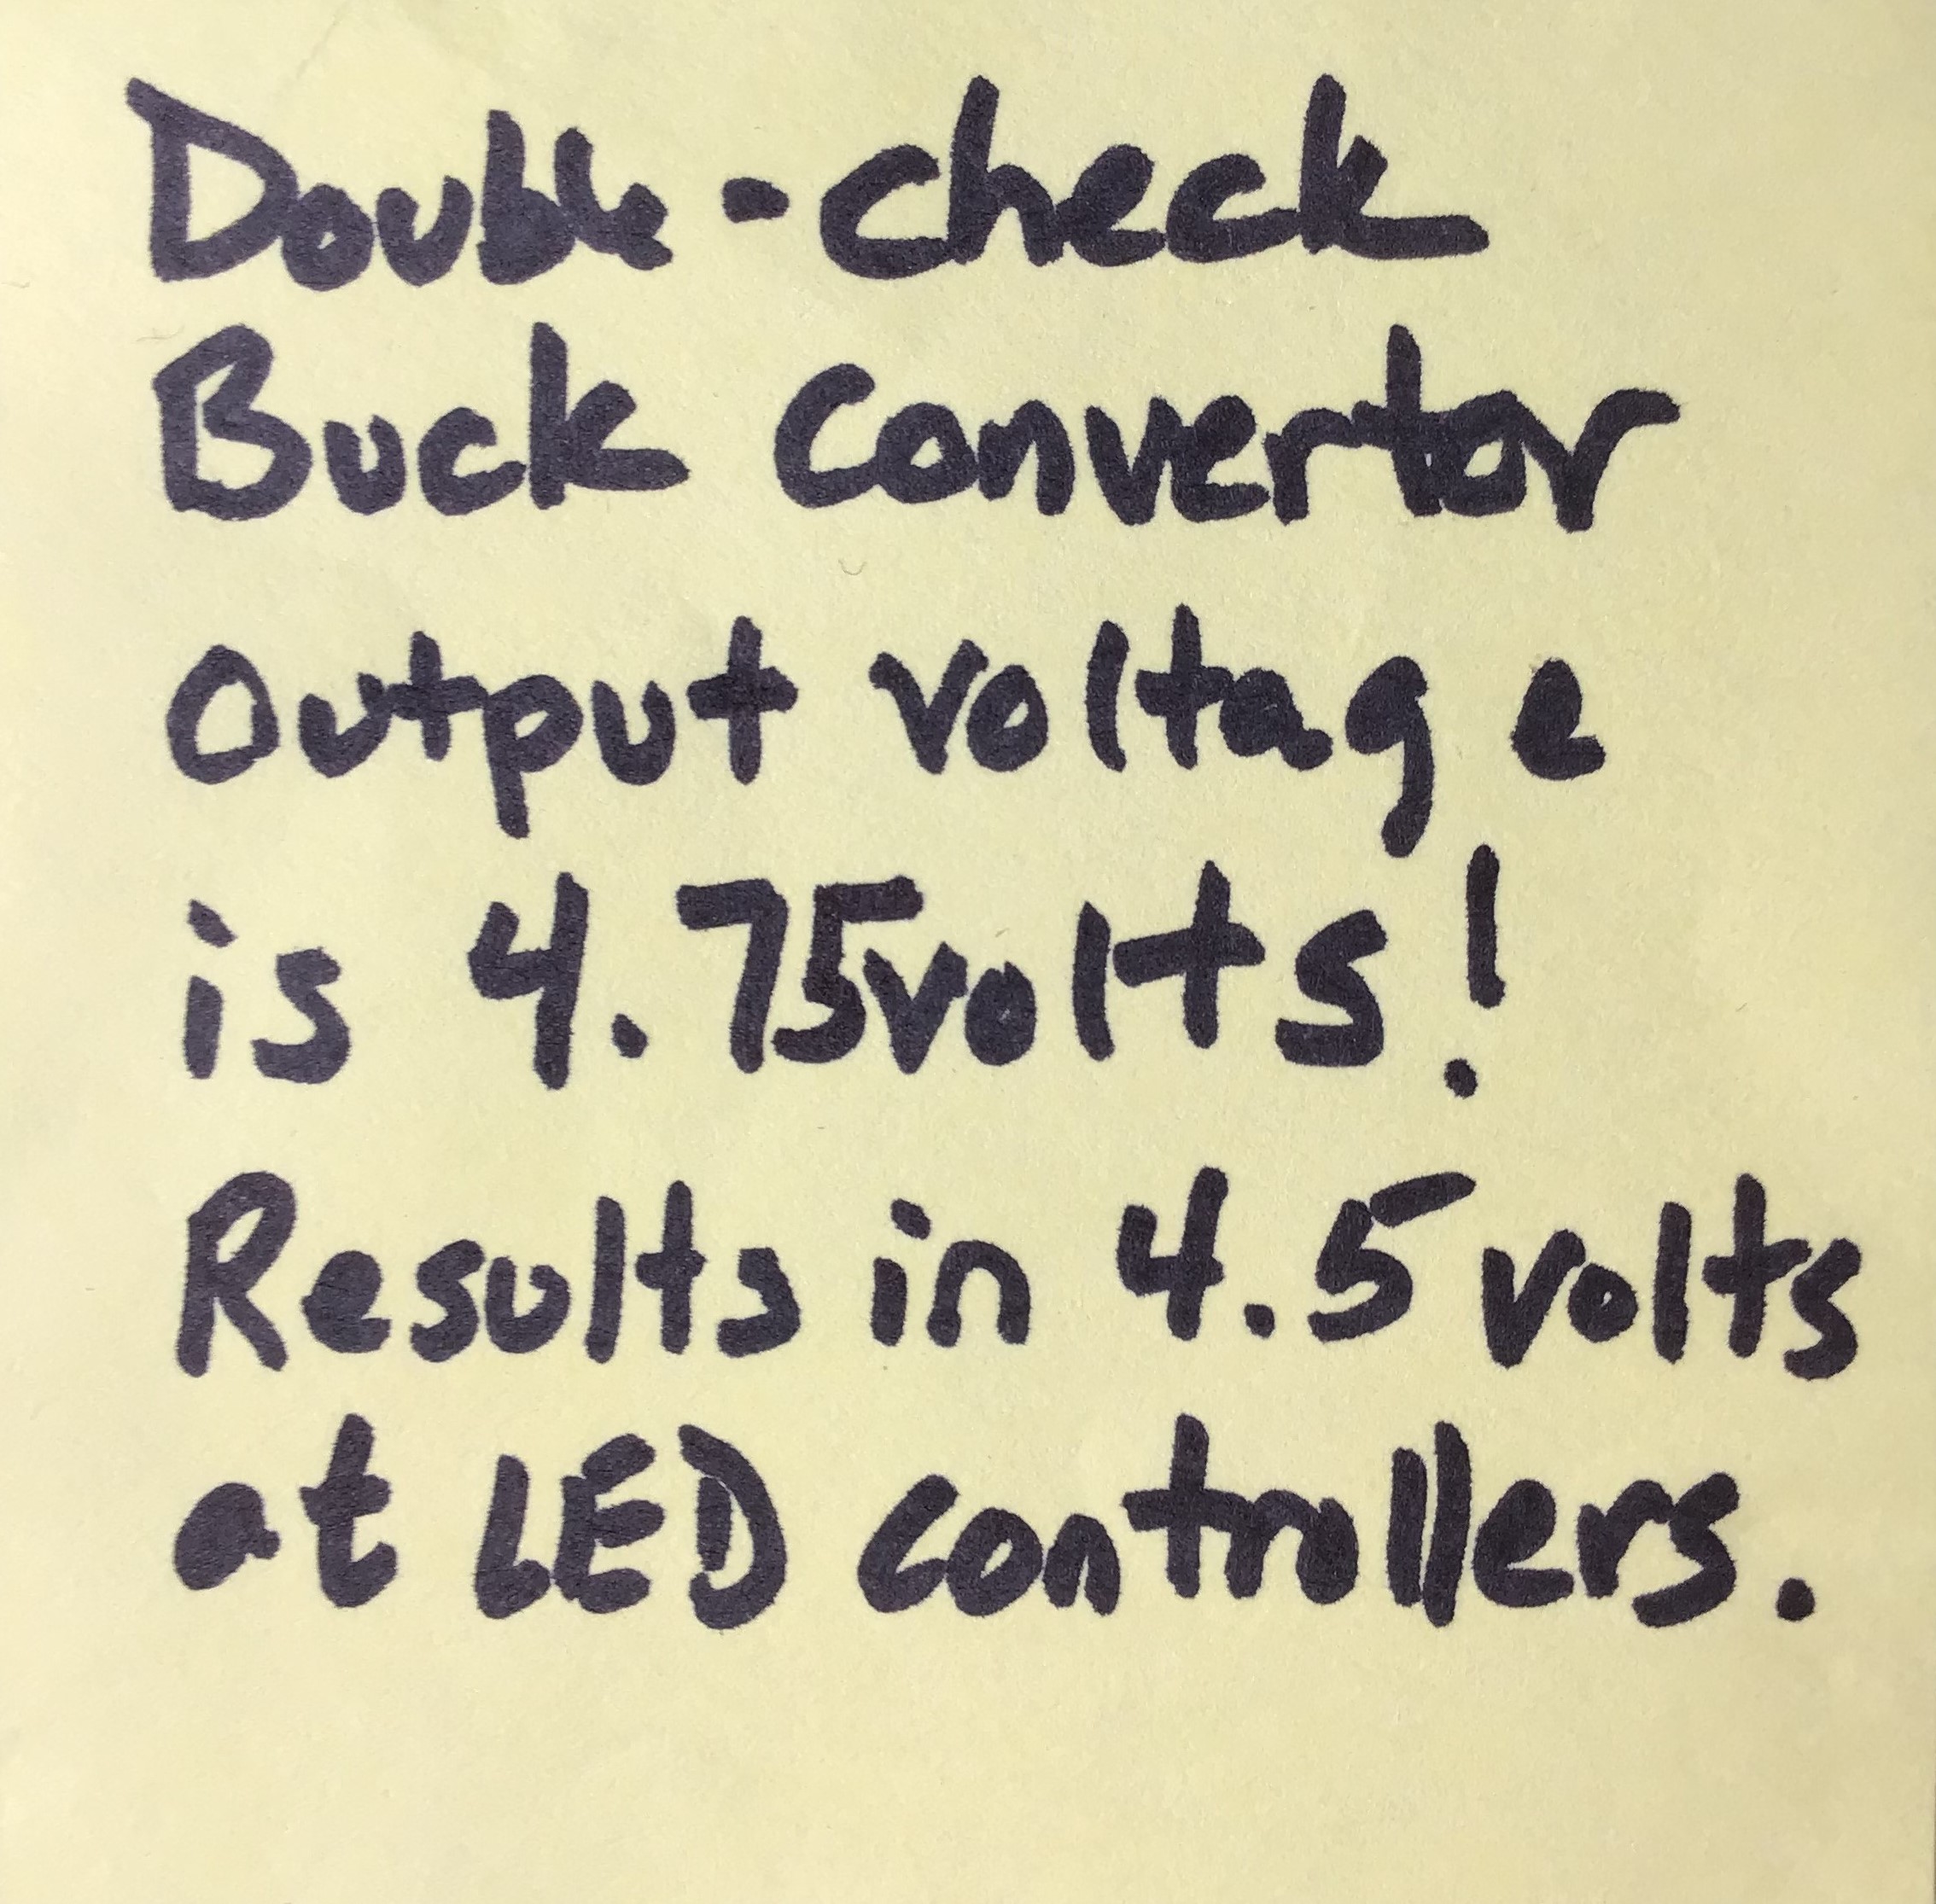 Double-check
Buck Convertor
Output voltage
is 4.75volts!
Results in 4.5 volts
at LED controllers.